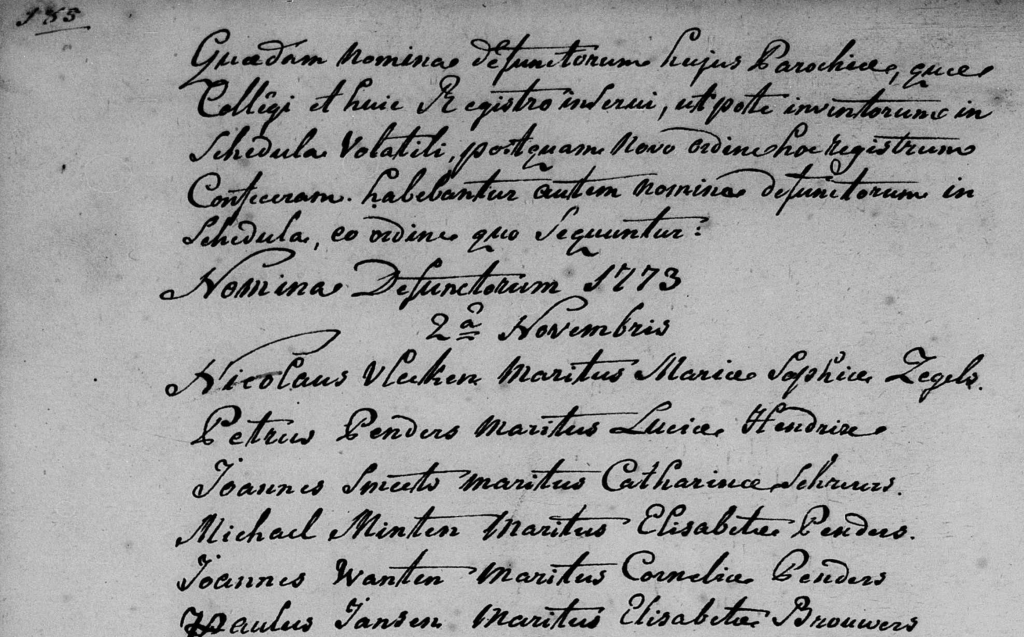 185
Quædam nomina defunctorum hujus Parochiæ, quæ
Collêgi et huic Registro înserui, ut pote inventorum in
Schedula Volatili, postquam novo ordine hoc registrum
Confeceram. habebantur autem nomina defunctorum in
Schedula, eo ordine quo Sequuntur:
Nomina Defunctorum 1773
2â Novembris
Nicolaus Vlecken Maritus Mariæ Sophiæ Zegels.
Petrus Penders maritus Luciæ Hendrix
Joannes Smeets maritus Catharinæ Schreurs.
Michael Minten Maritus Elisabetæ Penders.
Joannes Wanten Maritus Corneliæ Penders
Paulus Jansen Maritus Elisabetæ Brouwers